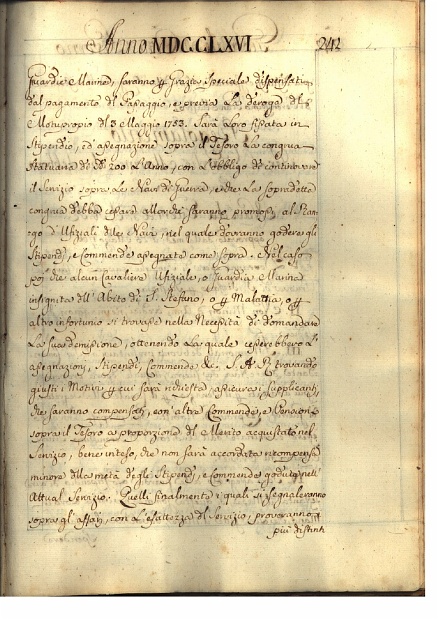 Anno MDCCLXVI. 242
Guardie Marine, saranno p Grazia speciale dispensati
dal pagamento del Passaggio, e previa la deroga del
Motuproprio del 3 Maggio 1753. Sarà loro fissata in
Stipendio, ed assegnazione sopra il Tesoro la congrua
Statuaria di 200 l'Anno, con l'obbligo di continovare
il Servizio sopra le Navi di Guerra, e che la sopradetta
congrua debba cessare allorchè saranno promossi al Ran-
go d'Ufiziali delle Navi, nel quale dovranno godere gli
Stipendj, e Commende assegnate come sopra. Nel caso
poi che alcun Cavaliere Ufiziale, o Guardia Marina
insignita dell'Abito di S. Stefano, o p Malattia, o p
altro infortunio si trovasse nella Necessità di domandare
la sua demissione, ottenendo la quale cesserebbero l'
assegnazioni, Stipendj, Commende &c. S. A. R. trovando
giusti i Motivi p cui sarà richiesta, assicura i supplicanti,
che saranno compensati, con altre Commende, e Pensioni
sopra il Tesoro a proporzione del Merito acquistato nel
Servizio, bene inteso, che non sarà accordata ricompensa
minore della metà degli Stipendj, e Commende godute nell'
Attual Servizio. Quelli finalmente i quali si segnaleranno
sopra gl'altri, con l'esattezza del Servizio proveranno
più distinti